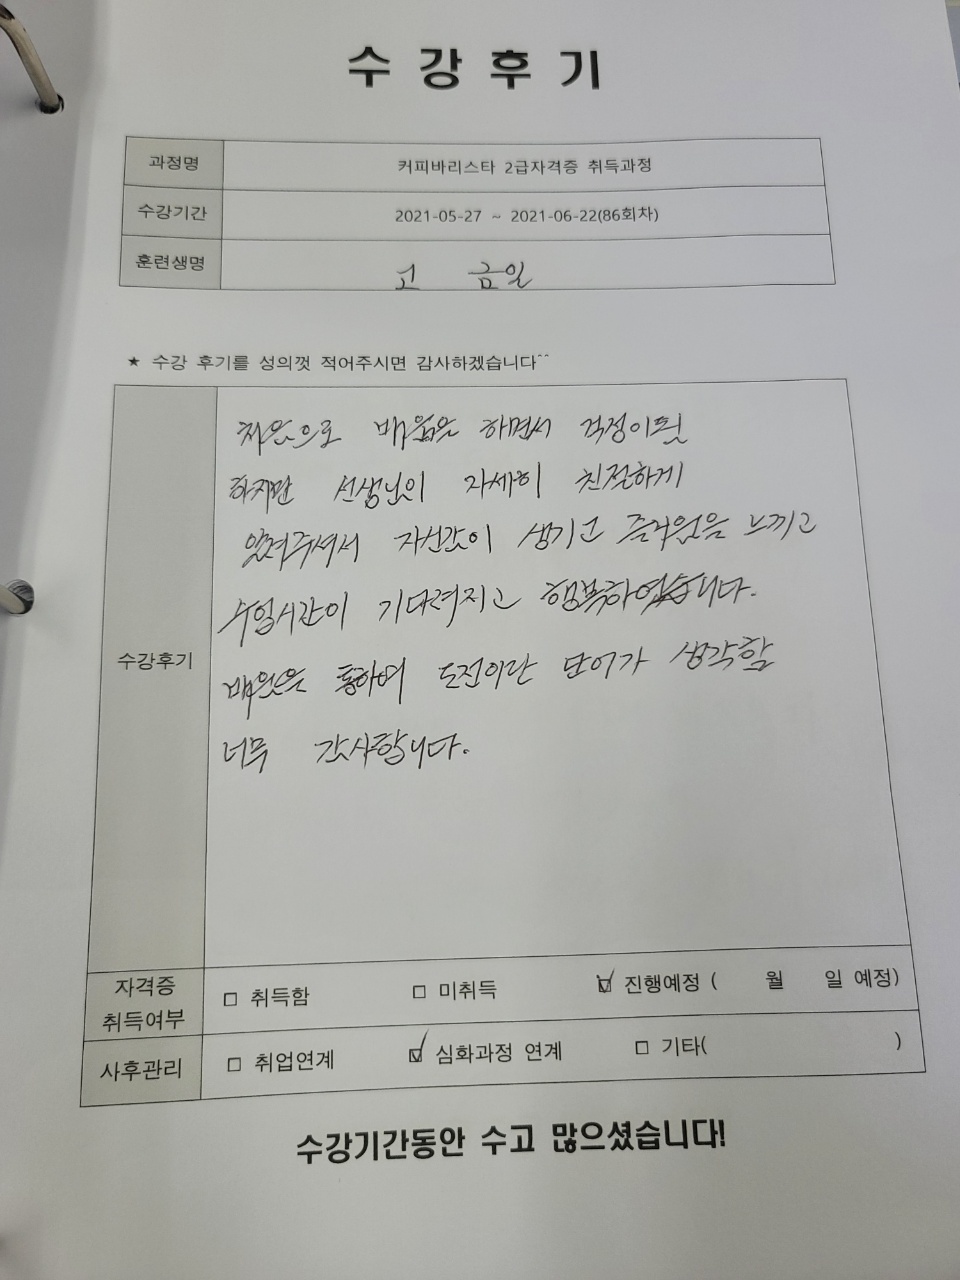 수강후기
과정명 커피바리스타 2급자격증 취득과정
수강기간 2021-05-27 ~ 2021-06-22(86회차)
훈련생명 고 금일
★ 수강 후기를 성의껏 적어주시면 감사하겠습니다^^
수강후기
처음으로 배움을 하면서 걱정이된
하지만 선생님이 자세히 친절하게
알려주셔서 자신감이 생기고 즐거움을 느끼고
수업시간이 기다려지고 행복하였습니다.
배움을 통하며 도전이란 단어가 생각함
너무 감사합니다.
자격증 취득여부 □ 취득함 □ 미취득 ☑ 진행예정 ( 월 일 예정)
사후관리 □ 취업연계 ☑ 심화과정 연계 □ 기타( )
수강기간동안 수고 많으셨습니다!